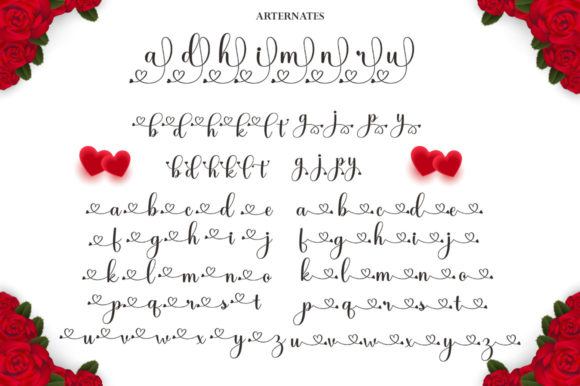 ARTERNATES
a d h i m n r u
b d h k l t g j p y
b d h k l t g j p y
a b c d e a b c d e
f g h i j f g h i j
k l m n o k l m n o
p q r s t p q r s t
u v w x y z u v w x y z